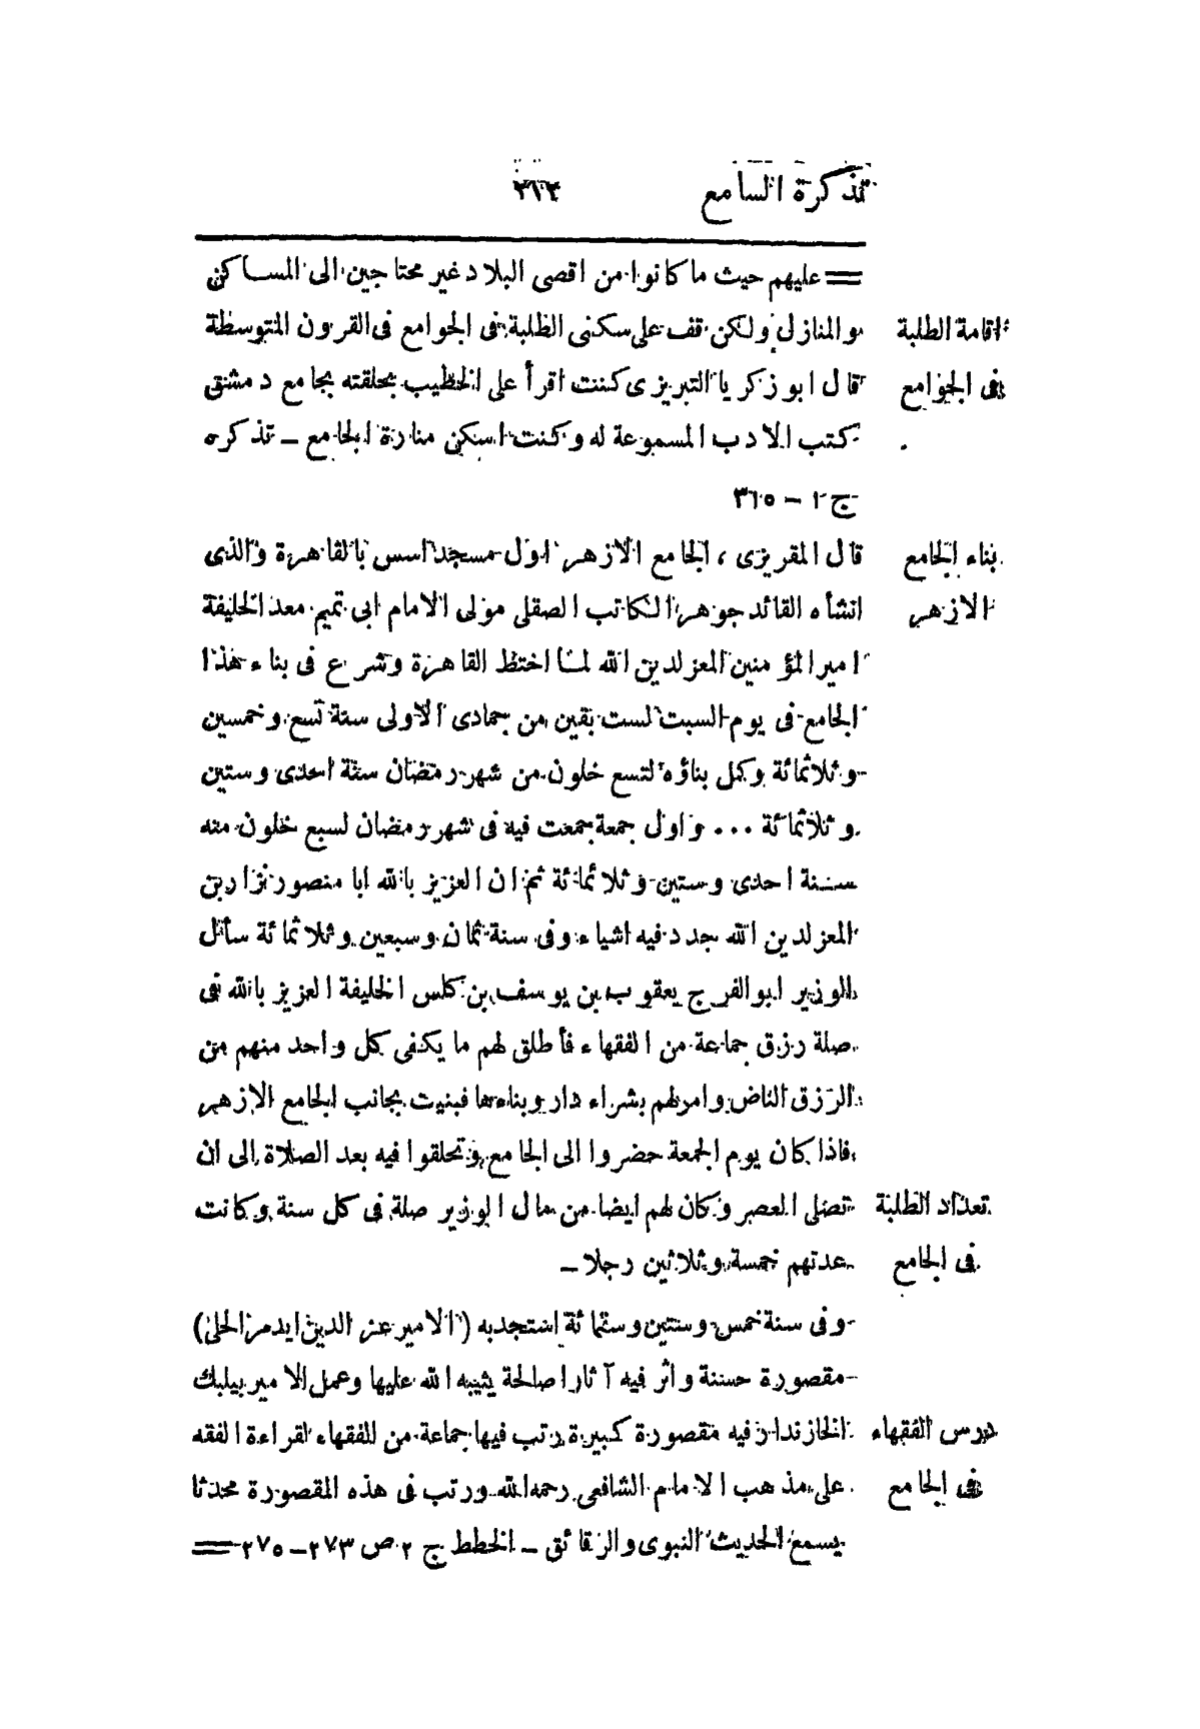 تذكرة السامع ٢١٣
= عليهم حيث ما كانوا من اقصى البلاد غير محتاجين الى المساكن
اقامة الطلبة والمنازل ولكن قف على سكنى الطلبة فى الجوامع فى القرون المتوسطة
فى الجوامع قال ابو زكريا التبريزى كنت اقرأ على الخطيب بحلقته بجامع دمشق
كتب الادب المسموعة له وكنت اسكن منارة الجامع – تذكره
ج ٣ – ٣١٥
بناء الجامع قال المقريزى ، الجامع الازهر اول مسجد اسس بالقاهرة والذى
الازهر انشأه القائد جوهر الكاتب الصقلى مولى الامام ابى تميم معد الخليفة
امير المؤمنين المعز لدين الله لما اختط القاهرة وشرع فى بناء هذا
الجامع فى يوم السبت لست بقين من جمادى الاولى سنة تسع وخمسين
وثلاثمائة وكمل بناؤه لتسع خلون من شهر رمضان سنة احدى وستين
وثلاثمائة ... واول جمعة جمعت فيه فى شهر رمضان لسبع خلون منه
سنة احدى وستين وثلاثمائة ثم ان العزيز بالله ابا منصور نزار بن
المعز لدين الله جدد فيه اشياء وفى سنة ثمان وسبعين وثلاثمائة سأل
الوزير ابو الفرج يعقوب بن يوسف بن كلس الخليفة العزيز بالله فى
صلة رزق جماعة من الفقهاء فأطلق لهم ما يكفى كل واحد منهم من
الرزق الناض وامر لهم بشراء دار وبناءها فبنيت بجانب الجامع الازهر
فاذا كان يوم الجمعة حضروا الى الجامع وتحلقوا فيه بعد الصلاة الى ان
تعداد الطلبة تصلى العصر وكان لهم ايضا من مال الوزير صلة فى كل سنة وكانت
فى الجامع عدتهم خمسة وثلاثين رجلا –
وفى سنة خمس وستين وستمائة استجد به (الامير عز الدين ايدمر الحلى)
مقصورة حسنة واثر فيه آثارا صالحة يثيبه الله عليها وعمل الامير بيلبك
درس الفقهاء الخازندار فيه مقصورة كبيرة رتب فيها جماعة من الفقهاء لقراءة الفقه
فى الجامع على مذهب الامام الشافعى رحمه الله ورتب فى هذه المقصورة محدثا
يسمع الحديث النبوى والرقائق – الخطط ج ٢ ص ٢٧٣ – ٢٧٥ =